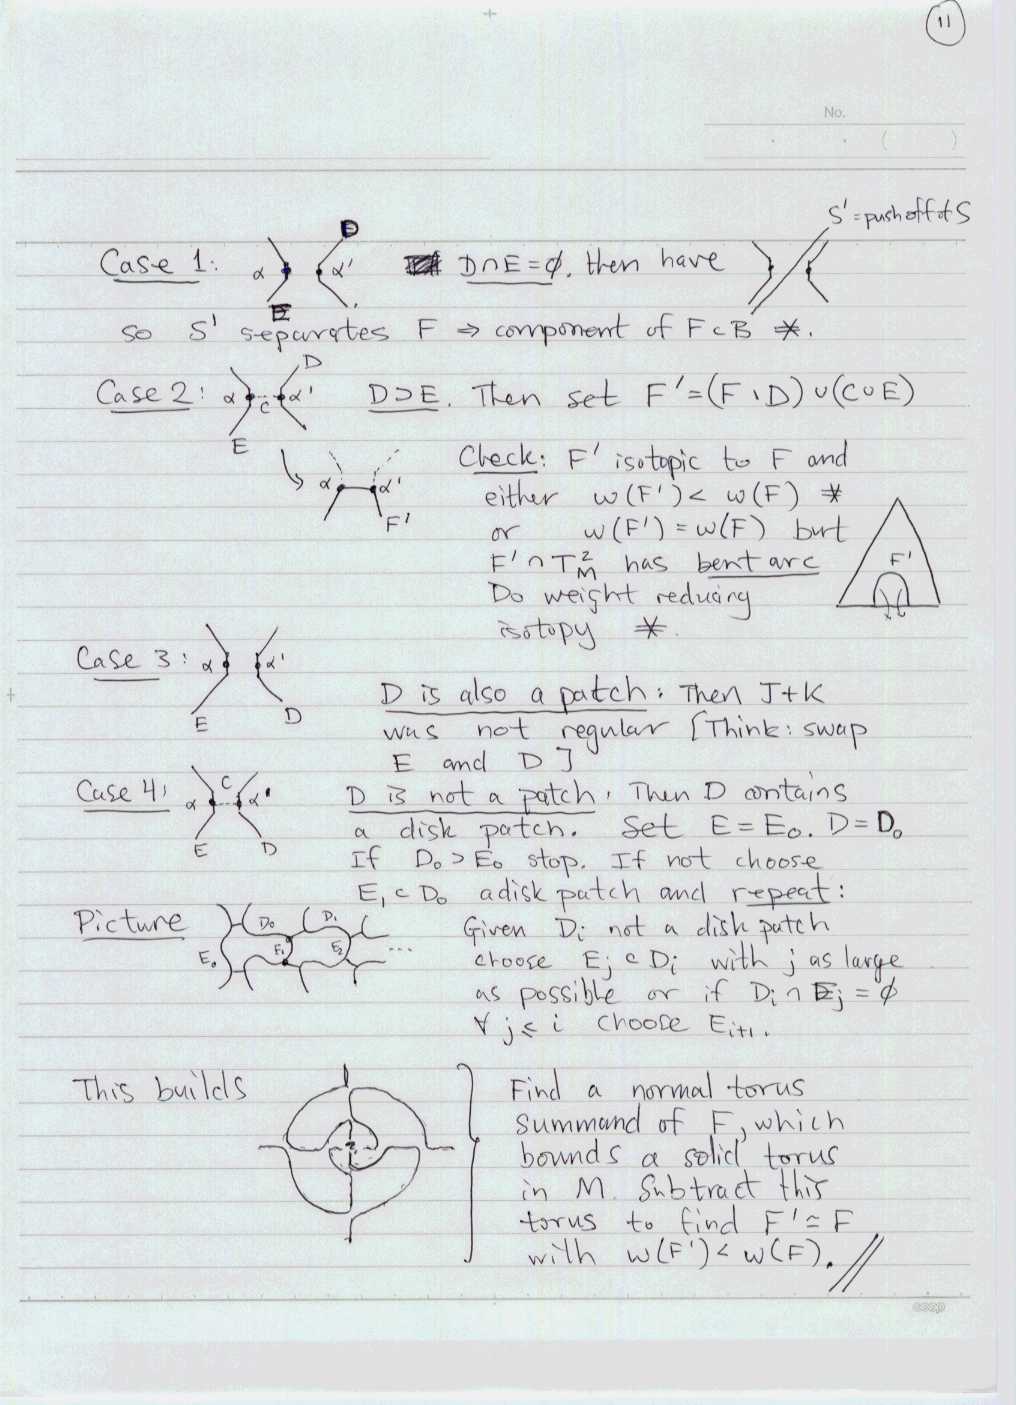 11
No.
( )
S' = push off of S
Case 1: α α' D E D∩E=∅, then have
so S' separates F ⇒ component of F ⊂ B ※.
Case 2: α C α' D E D⊃E. Then set F'=(F∖D)∪(C∪E)
α α' F' Check: F' isotopic to F and
either w(F') < w(F) ※
or w(F') = w(F) but
F' ∩ T²_M has bent arc
F'
Do weight reducing
isotopy ※.
Case 3: α α' E D
D is also a patch: Then J+K
was not regular [Think: swap
E and D]
Case 4: α C α' E D D is not a patch. Then D contains
a disk patch. Set E=E₀. D=D₀
If D₀⊃E₀ stop. If not choose
E₁⊂D₀ a disk patch and repeat:
Picture E₀ D₀ E₁ D₁ E₂ ...
Given Dᵢ not a disk patch
choose Eⱼ⊂Dᵢ with j as large
as possible or if Dᵢ∩Eⱼ=∅
∀ j≤i choose Eᵢ₊₁.
This builds ?
Find a normal torus
summand of F, which
bounds a solid torus
in M. Subtract this
torus to find F'≃F
with w(F')<w(F). //
coop